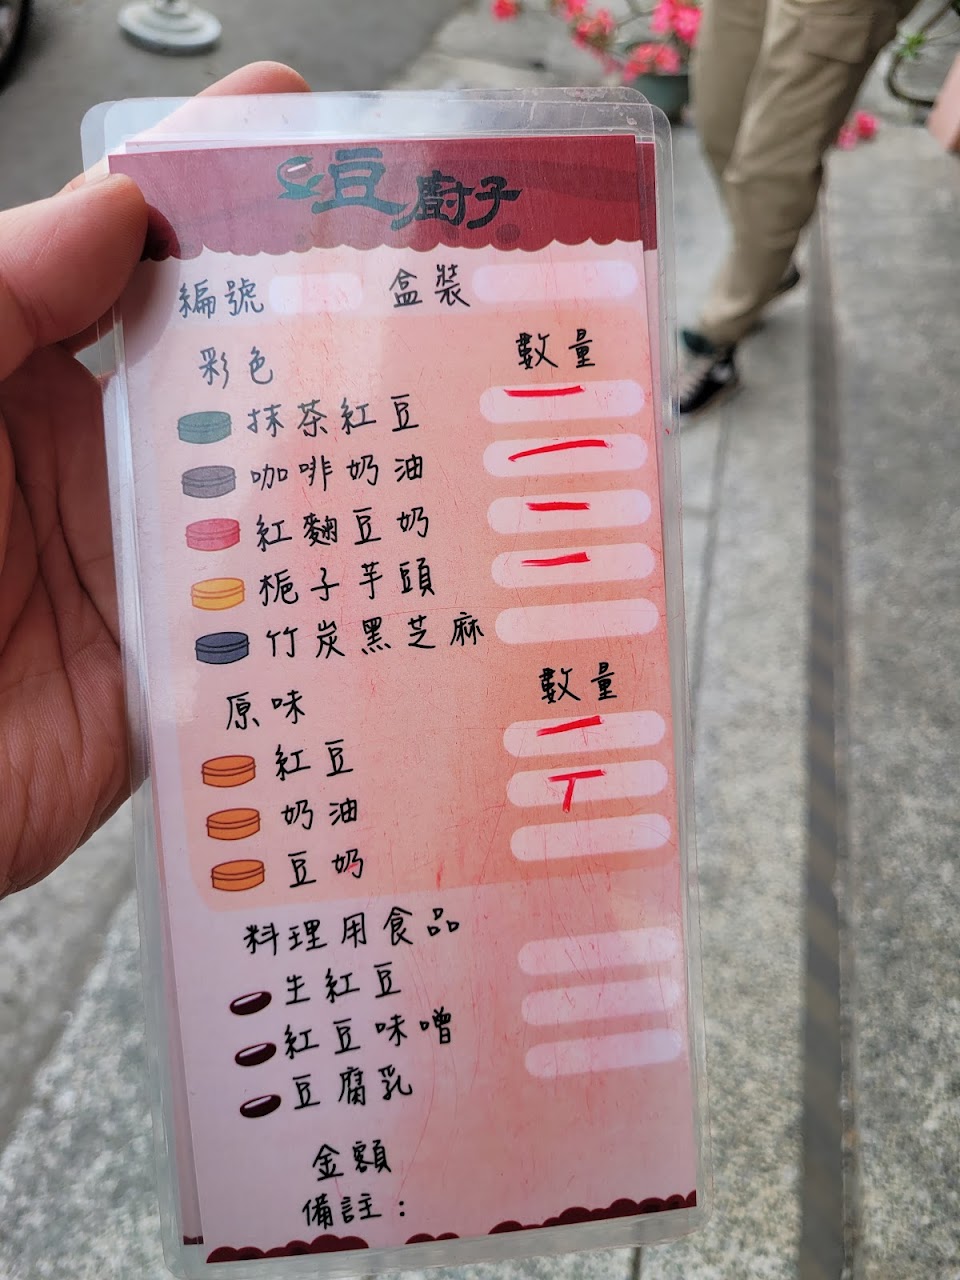 豆廚子
編號 盒裝
彩色 數量
抹茶紅豆 一
咖啡奶油 一
紅麴豆奶 一
梔子芋頭 一
竹炭黑芝麻
原味 數量
紅豆 一
奶油 丅
豆奶
料理用食品
生紅豆
紅豆味噌
豆腐乳
金額
備註：